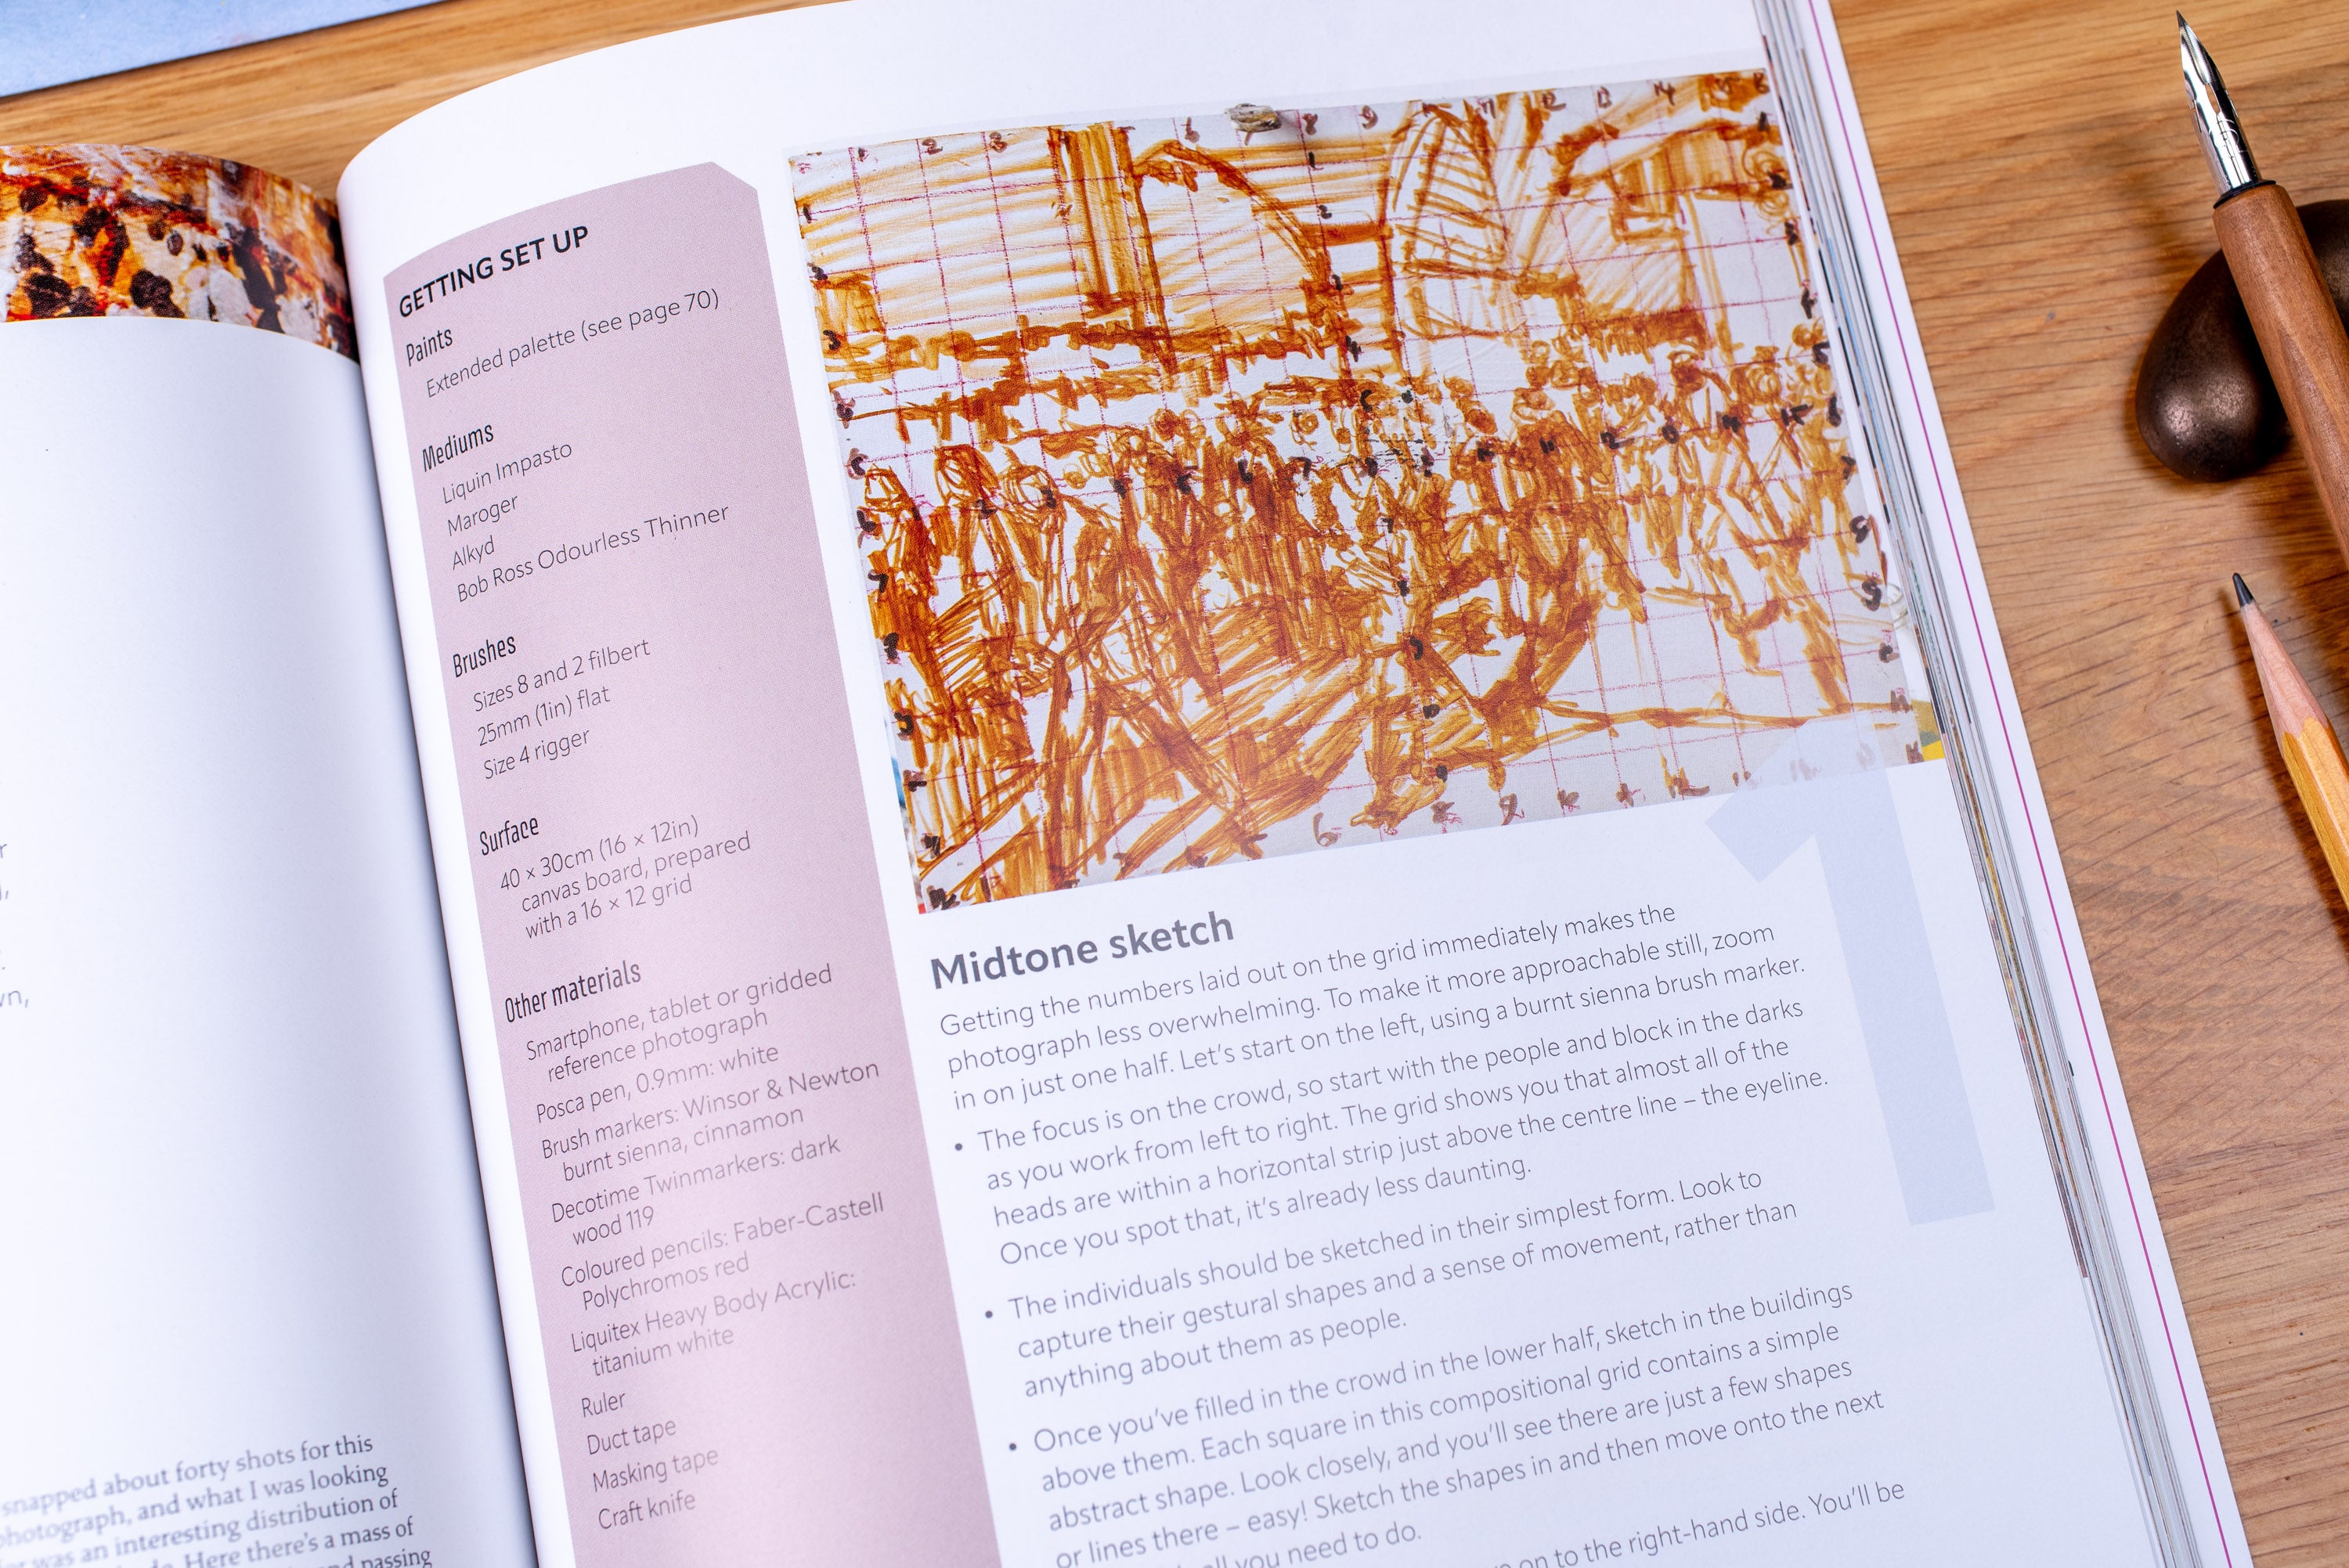 snapped about forty shots for this
photograph, and what I was looking
was an interesting distribution of
Here there's a mass of
passing
GETTING SET UP
Paints
Extended palette (see page 70)
Mediums
Liquin Impasto
Maroger
Alkyd
Bob Ross Odourless Thinner
Brushes
Sizes 8 and 2 filbert
25mm (1in) flat
Size 4 rigger
Surface
40 × 30cm (16 × 12in)
canvas board, prepared
with a 16 × 12 grid
Other materials
Smartphone, tablet or gridded
reference photograph
Posca pen, 0.9mm: white
Brush markers: Winsor & Newton
burnt sienna, cinnamon
Decotime Twinmarkers: dark
wood 119
Coloured pencils: Faber-Castell
Polychromos red
Liquitex Heavy Body Acrylic:
titanium white
Ruler
Duct tape
Masking tape
Craft knife
1
Midtone sketch
Getting the numbers laid out on the grid immediately makes the
photograph less overwhelming. To make it more approachable still, zoom
in on just one half. Let's start on the left, using a burnt sienna brush marker.
• The focus is on the crowd, so start with the people and block in the darks
as you work from left to right. The grid shows you that almost all of the
heads are within a horizontal strip just above the centre line – the eyeline.
Once you spot that, it's already less daunting.
• The individuals should be sketched in their simplest form. Look to
capture their gestural shapes and a sense of movement, rather than
anything about them as people.
• Once you've filled in the crowd in the lower half, sketch in the buildings
above them. Each square in this compositional grid contains a simple
abstract shape. Look closely, and you'll see there are just a few shapes
or lines there – easy! Sketch the shapes in and then move onto the next
all you need to do.
on to the right-hand side. You'll be